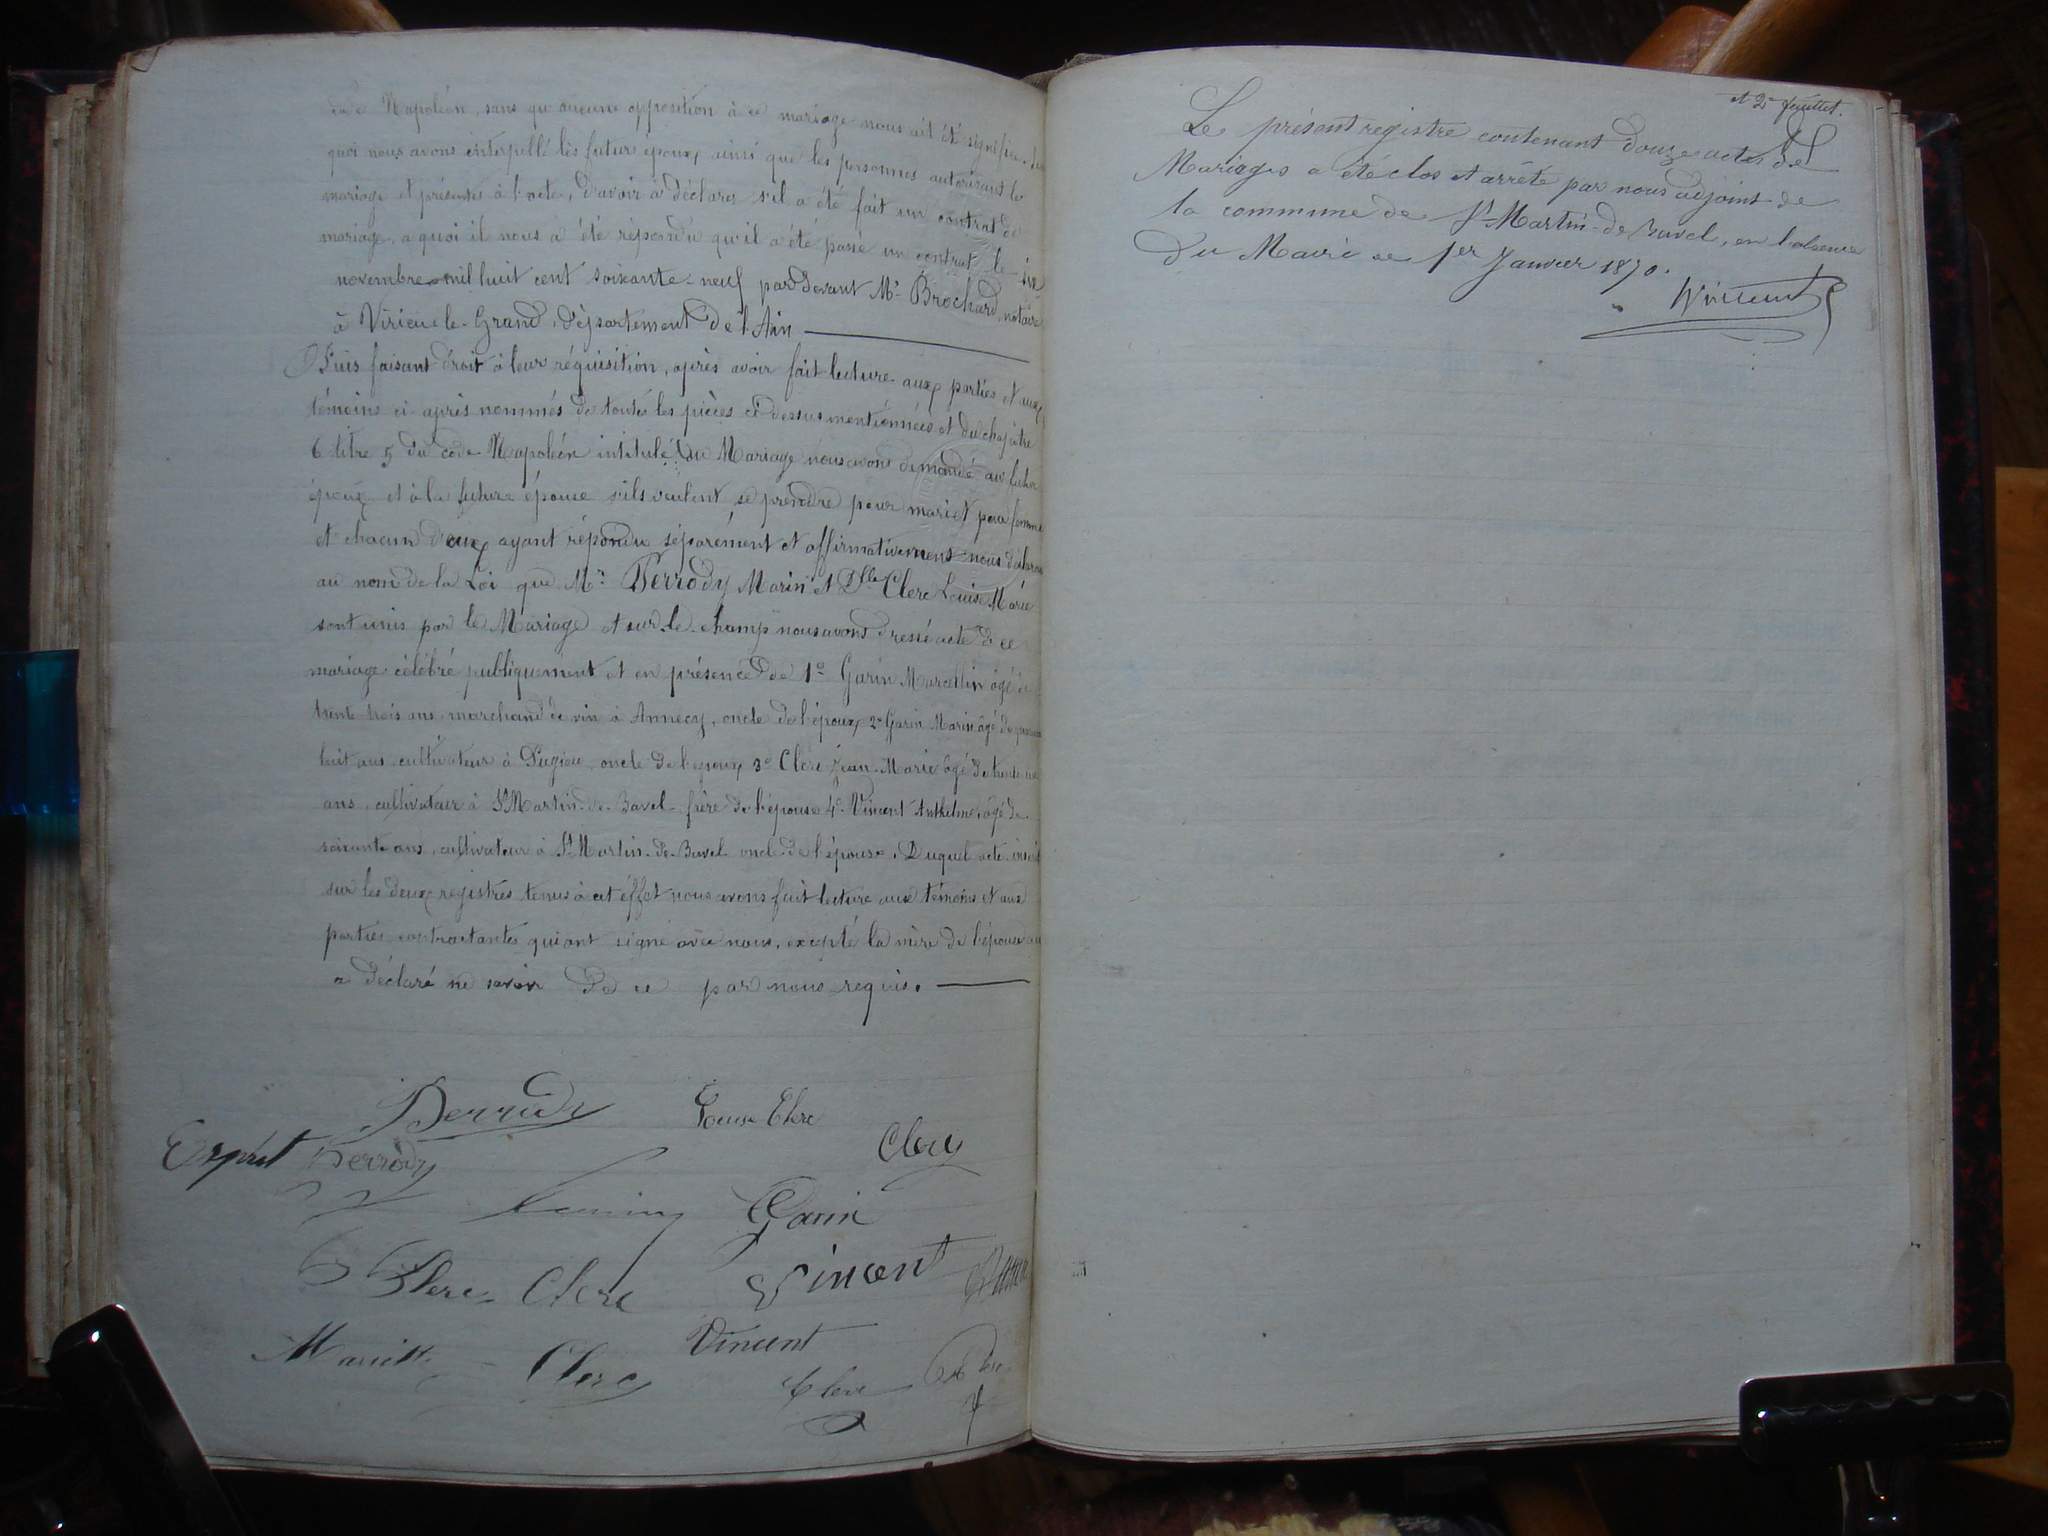 Napoléon, sans qu'aucune opposition à ce mariage nous ait été signifiée. Sur
quoi nous avons interpellé les futurs époux, ainsi que les personnes autorisant le
mariage et présentes à l'acte, d'avoir à déclarer s'il a été fait un contrat de
mariage, a quoi il nous a été répondu qu'il a été passé un contrat le
novembre mil huit cent soixante-neuf pardevant Me Brochard, notaire
à Virieu-le-Grand, département de l'Ain
Puis faisant droit à leur réquisition, après avoir fait lecture aux parties et aux
témoins ci après nommés de toutes les pièces ci dessus mentionnées et du chapitre
6 titre 5 du code Napoléon intitulé du Mariage nous avons demandé au futur
époux et à la future épouse s'ils veulent se prendre pour mari et pour femme
et chacun d'eux ayant répondu séparément et affirmativement nous déclarons
au nom de la Loi que Mr Perrody Marin et Dlle Clerc Louise Marie
sont unis par le Mariage et sur-le-champ nous avons dressé acte de ce
mariage célébré publiquement et en présence de 1o Garin Marcellin âgé de
trente trois ans, marchand de vin à Annecy, oncle de l'époux, 2o Garin Marin âgé de
huit ans cultivateur à Pugieu oncle de l'époux, 3o Clerc Jean-Marie âgé de trente
ans, cultivateur à St Martin-de-Bavel frère de l'épouse 4o Vincent Anthelme âgé de
soixante ans, cultivateur à St Martin-de-Bavel oncle de l'épouse. Duquel acte inscrit
sur les deux registres tenus à cet éffet nous avons fait lecture aux témoins et aux
parties contractantes qui ont signé avec nous, excepté la mère de l'épouse
a déclaré ne savoir de ce par nous requis.
Perrody Louise Clerc
Esprit Perrody Clerc
Garin
Clerc Clerc Vincent
Mariette Clerc Vincent
Clerc
et 2e feuillet.
Le présent registre contenant douze actes de
Mariages a été clos et arrêté par nous adjoint de
la commune de St-Martin-de-Bavel, en l'absence
Du Maire le 1er Janvier 1870.
Vincent